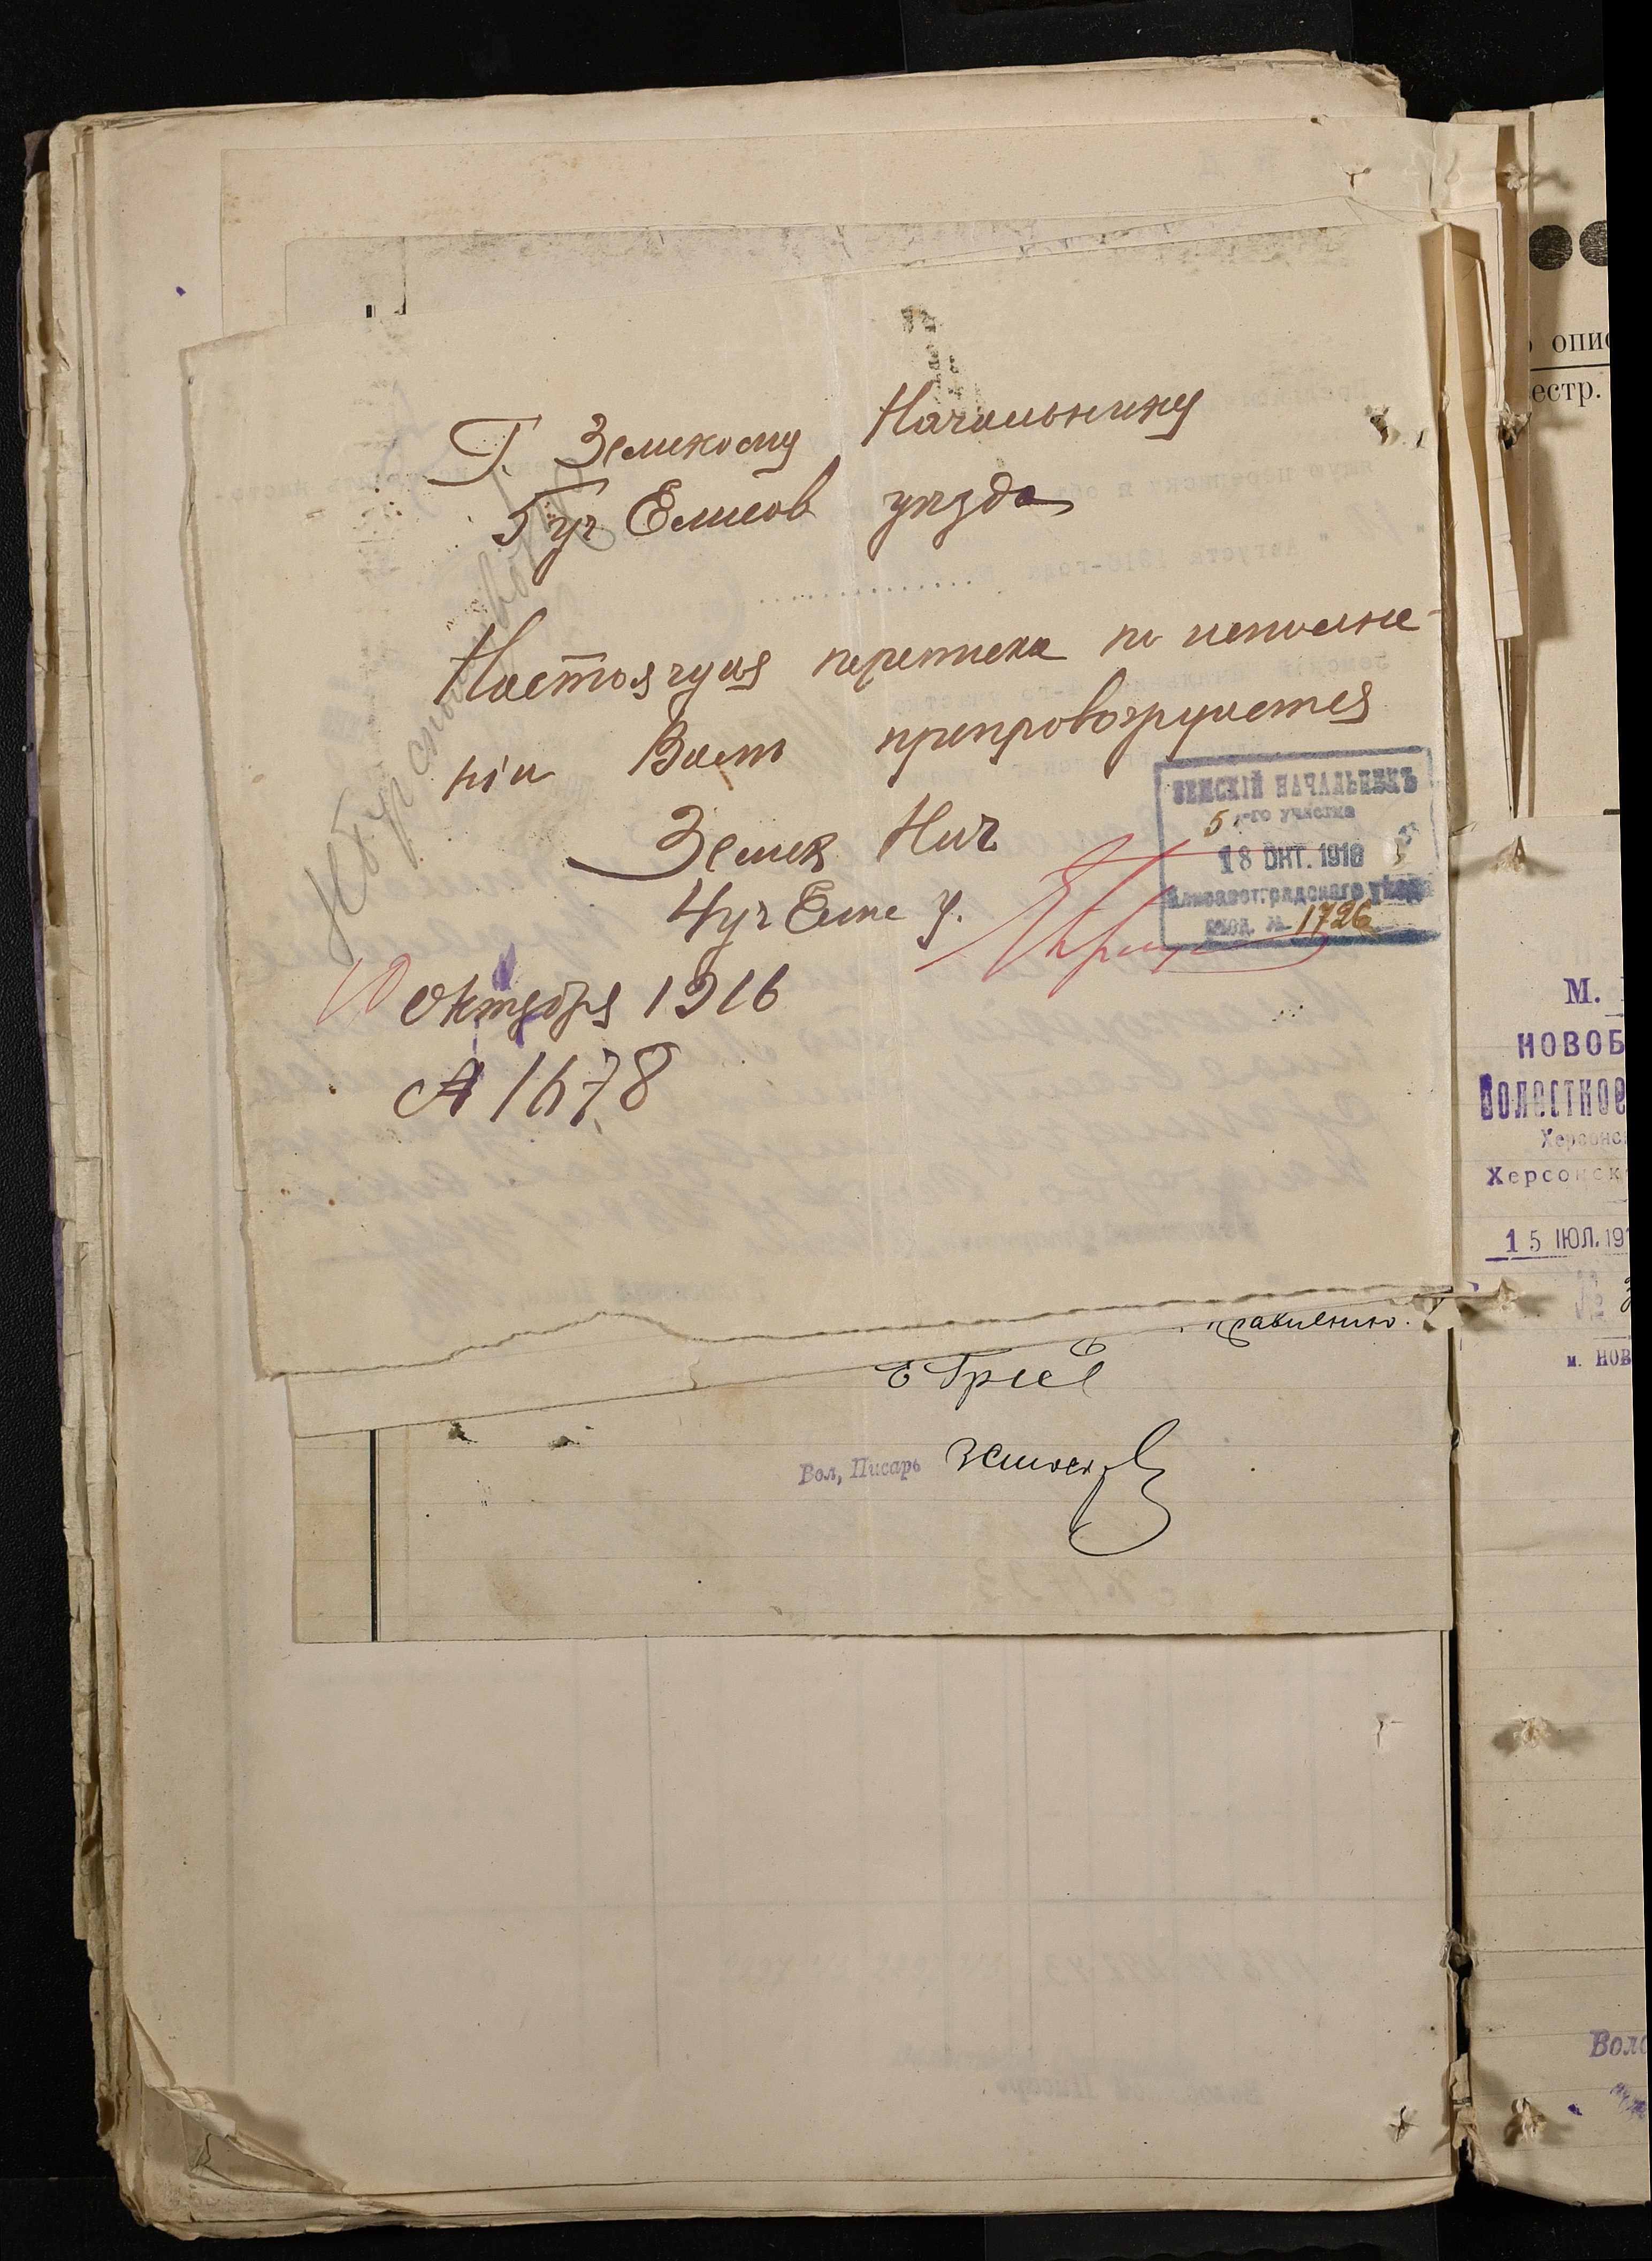 Г. Земскому Начальнику
5 уч Елисов уѣзда
Настоящая переписка по исполне-
ніи Вамъ препровождается
Земск Нач
4 уч Елис у.
ЗЕМСКІЙ НАЧАЛЬНИКЪ
5-го участка
18 ОКТ. 1916
Елисаветградскаго уѣзда
вход. № 1726
10 октября 1916
№ 1678
правленію.
Вол, Писарь
о опис
естр.
М.
НОВОБ
ВОЛОСТНОЕ
Херсонс
Херсонск
15 ІЮЛ. 19
№ 3
м. НОВ
Воло